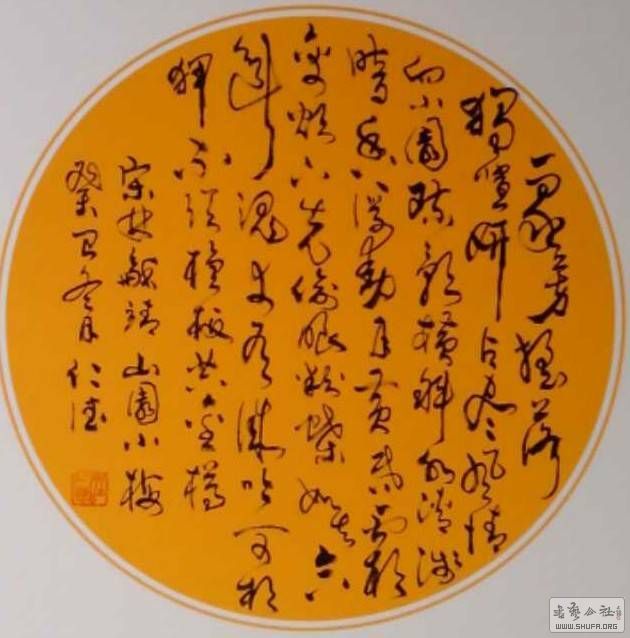 众芳摇落
獨喧妍占尽风情
向小園疏影横斜水清浅
暗香浮動月黄昏霜
禽欲下先偷眼粉蝶如知合
断魂幸有微吟可相
狎不须檀板共金樽
宋林和靖山園小梅
癸卯冬月仁德
書藝公社
WWW.SHUFA.ORG